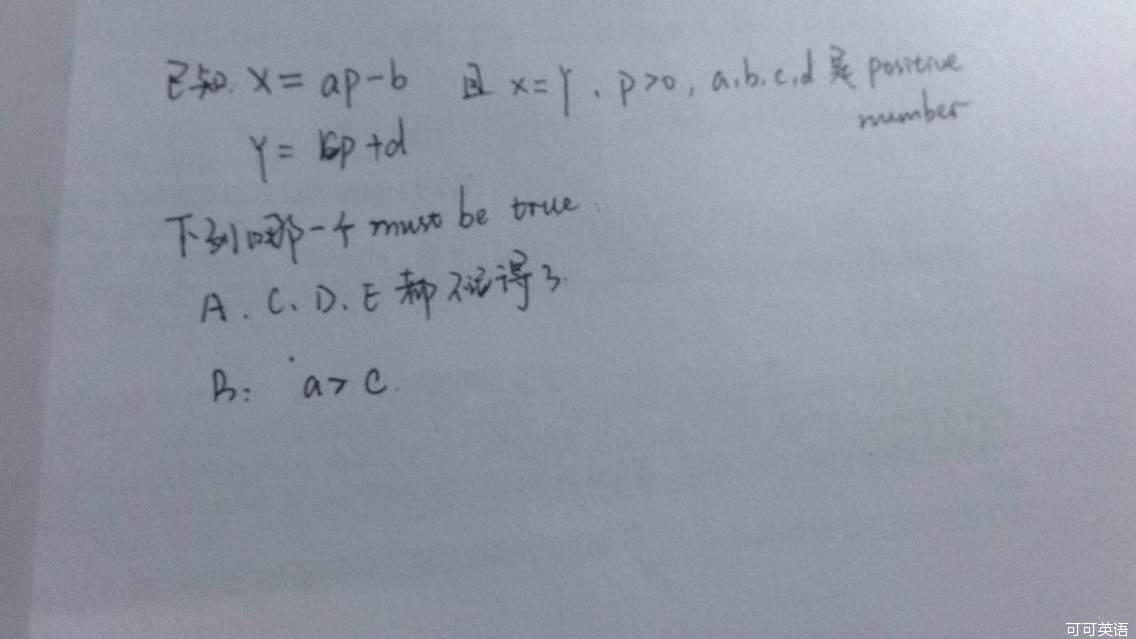 已知: X = ap - b 且 x = Y、p>0, a.b.c.d 是 positive
number
Y = p + d
下列哪一个 must be true.
A. C. D. E 都不记得了.
B: a > C.
可可英语